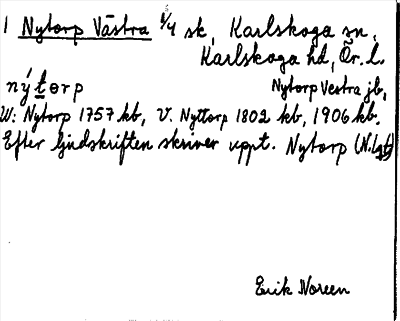 1 Nytorp Västra 1/4 sk, Karlskoga sn,
Karlskoga hd, Ör. l.
nýtorp Nytorp Vestra jb,
W: Nytorp 1757 kb, V. Nyttorp 1802 kb, 1906 kb.
Efter ljudskriften skriver uppt. Nytorp
Erik Noreen